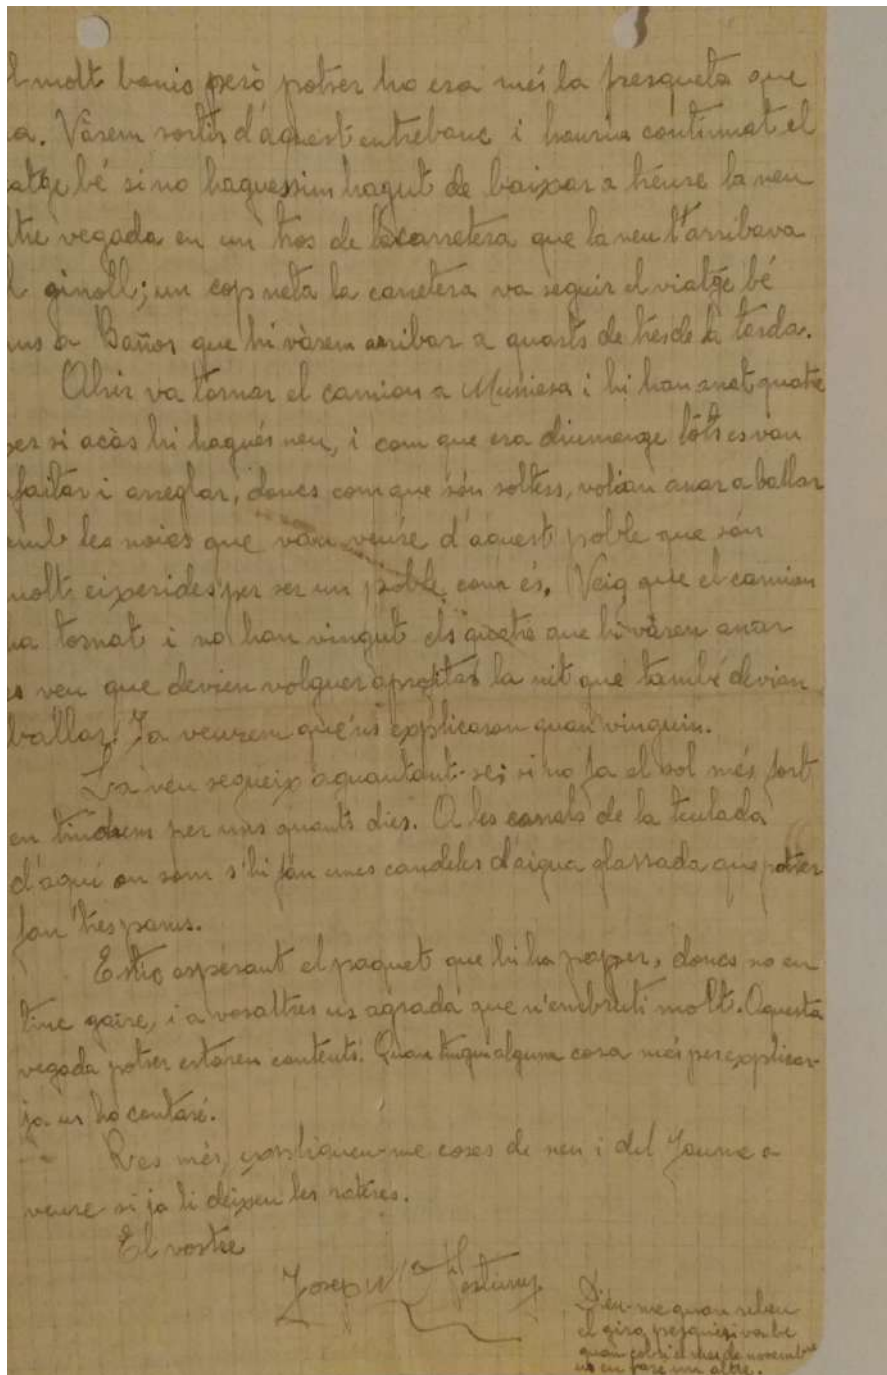 l molt bonic però potser ho era més la fresqueta que
a. Vàrem sortir d'aquest entrebanc i hauria continuat el
atge bé si no haguessim hagut de baixar a treure la neu
tre vegada en un tros de la carretera que la neu l'arribava
l ginoll; un cop neta la carretera va seguir el viatge bé
ns a Baños que hi vàrem arribar a quarts de tres de la tarda.
Ahir va tornar el camion a Muniesa i hi han anat quatre
per si acàs hi hagués neu, i com que era diumenge tots es van
faitar i arreglar, doncs com que són solters, volian anar a ballar
amb les noies que van veure d'aquest poble que són
molt eixerides per ser un poble com és. Veig que el camion
ha tornat i no han vingut els quatre que hi vàren anar
es veu que devien volguer aprofitar la nit que també devian
ballar. Ja veurem que'ns explicaran quan vinguin.
La neu segueix aguantant-se; si no fa el sol més fort
en tindrem per uns quants dies. A les canals de la teulada
d'aquí on som s'hi fan unes candeles d'aigua glassada que potser
fan tres pams.
Estic esperant el paquet que hi ha papper, doncs no en
tinc gaire, i a vosaltres us agrada que n'embruti molt. Aquesta
vegada potser estareu contents. Quan tingui alguna cosa més per explicar-
ja us ho contaré.
Res més, expliqueu-me coses de neu i del Jaume a
veure si ja li deixeu les ratères.
El vostre
Josep
Dieu-me quan rebeu
el giro perquè si va bé
quan cobri el mes de novembre
us en faré un altre.